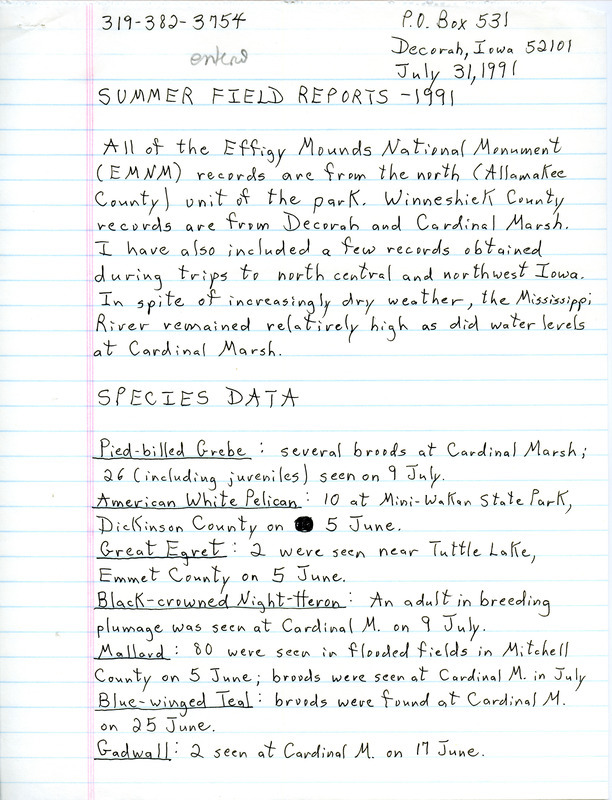 319-382-3754
P.O. Box 531
Decorah, Iowa 52101
entered
July 31, 1991
SUMMER FIELD REPORTS - 1991
All of the Effigy Mounds National Monument
(EMNM) records are from the north (Allamakee
County) unit of the park. Winneshiek County
records are from Decorah and Cardinal Marsh.
I have also included a few records obtained
during trips to north central and northwest Iowa.
In spite of increasingly dry weather, the Mississippi
River remained relatively high as did water levels
at Cardinal Marsh.
SPECIES DATA
Pied-billed Grebe: several broods at Cardinal Marsh;
26 (including juveniles) seen on 9 July.
American White Pelican: 10 at Mini-Wakan State Park,
Dickinson County on 5 June.
Great Egret: 2 were seen near Tuttle Lake,
Emmet County on 5 June.
Black-crowned Night-Heron: An adult in breeding
plumage was seen at Cardinal M. on 9 July.
Mallard: 80 were seen in flooded fields in Mitchell
County on 5 June; broods were seen at Cardinal M. in July
Blue-winged Teal: broods were found at Cardinal M.
on 25 June.
Gadwall: 2 seen at Cardinal M. on 17 June.